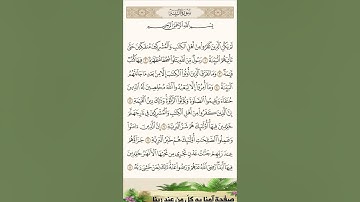 سورة البينة
بِسْمِ اللَّهِ الرَّحْمَٰنِ الرَّحِيمِ
لَمْ يَكُنِ الَّذِينَ كَفَرُوا مِنْ أَهْلِ الْكِتَابِ وَالْمُشْرِكِينَ مُنفَكِّينَ حَتَّىٰ
تَأْتِيَهُمُ الْبَيِّنَةُ ۝١ رَسُولٌ مِّنَ اللَّهِ يَتْلُو صُحُفًا مُّطَهَّرَةً ۝٢ فِيهَا كُتُبٌ
قَيِّمَةٌ ۝٣ وَمَا تَفَرَّقَ الَّذِينَ أُوتُوا الْكِتَابَ إِلَّا مِن بَعْدِ مَا جَاءَتْهُمُ
الْبَيِّنَةُ ۝٤ وَمَا أُمِرُوا إِلَّا لِيَعْبُدُوا اللَّهَ مُخْلِصِينَ لَهُ الدِّينَ
حُنَفَاءَ وَيُقِيمُوا الصَّلَاةَ وَيُؤْتُوا الزَّكَاةَ وَذَٰلِكَ دِينُ الْقَيِّمَةِ ۝٥
إِنَّ الَّذِينَ كَفَرُوا مِنْ أَهْلِ الْكِتَابِ وَالْمُشْرِكِينَ فِي نَارِ جَهَنَّمَ
خَالِدِينَ فِيهَا أُولَٰئِكَ هُمْ شَرُّ الْبَرِيَّةِ ۝٦ إِنَّ الَّذِينَ آمَنُوا
وَعَمِلُوا الصَّالِحَاتِ أُولَٰئِكَ هُمْ خَيْرُ الْبَرِيَّةِ ۝٧ جَزَاؤُهُمْ
عِندَ رَبِّهِمْ جَنَّاتُ عَدْنٍ تَجْرِي مِن تَحْتِهَا الْأَنْهَارُ خَالِدِينَ
فِيهَا أَبَدًا رَّضِيَ اللَّهُ عَنْهُمْ وَرَضُوا عَنْهُ ذَٰلِكَ لِمَنْ خَشِيَ رَبَّهُ ۝٨
صفحة آمنا به كل من عند ربنا